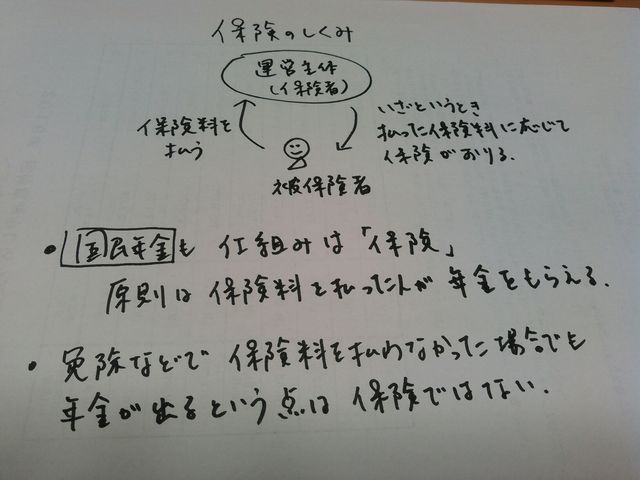 保険のしくみ
運営主体
(保険者)
保険料を
払う
いざというとき
払った保険料に応じて
保険がおりる.
被保険者
• 国民年金も 仕組みは「保険」
原則は 保険料を払った人が 年金をもらえる.
• 免除などで 保険料を払わなかった場合でも
年金が出るという点は 保険ではない.